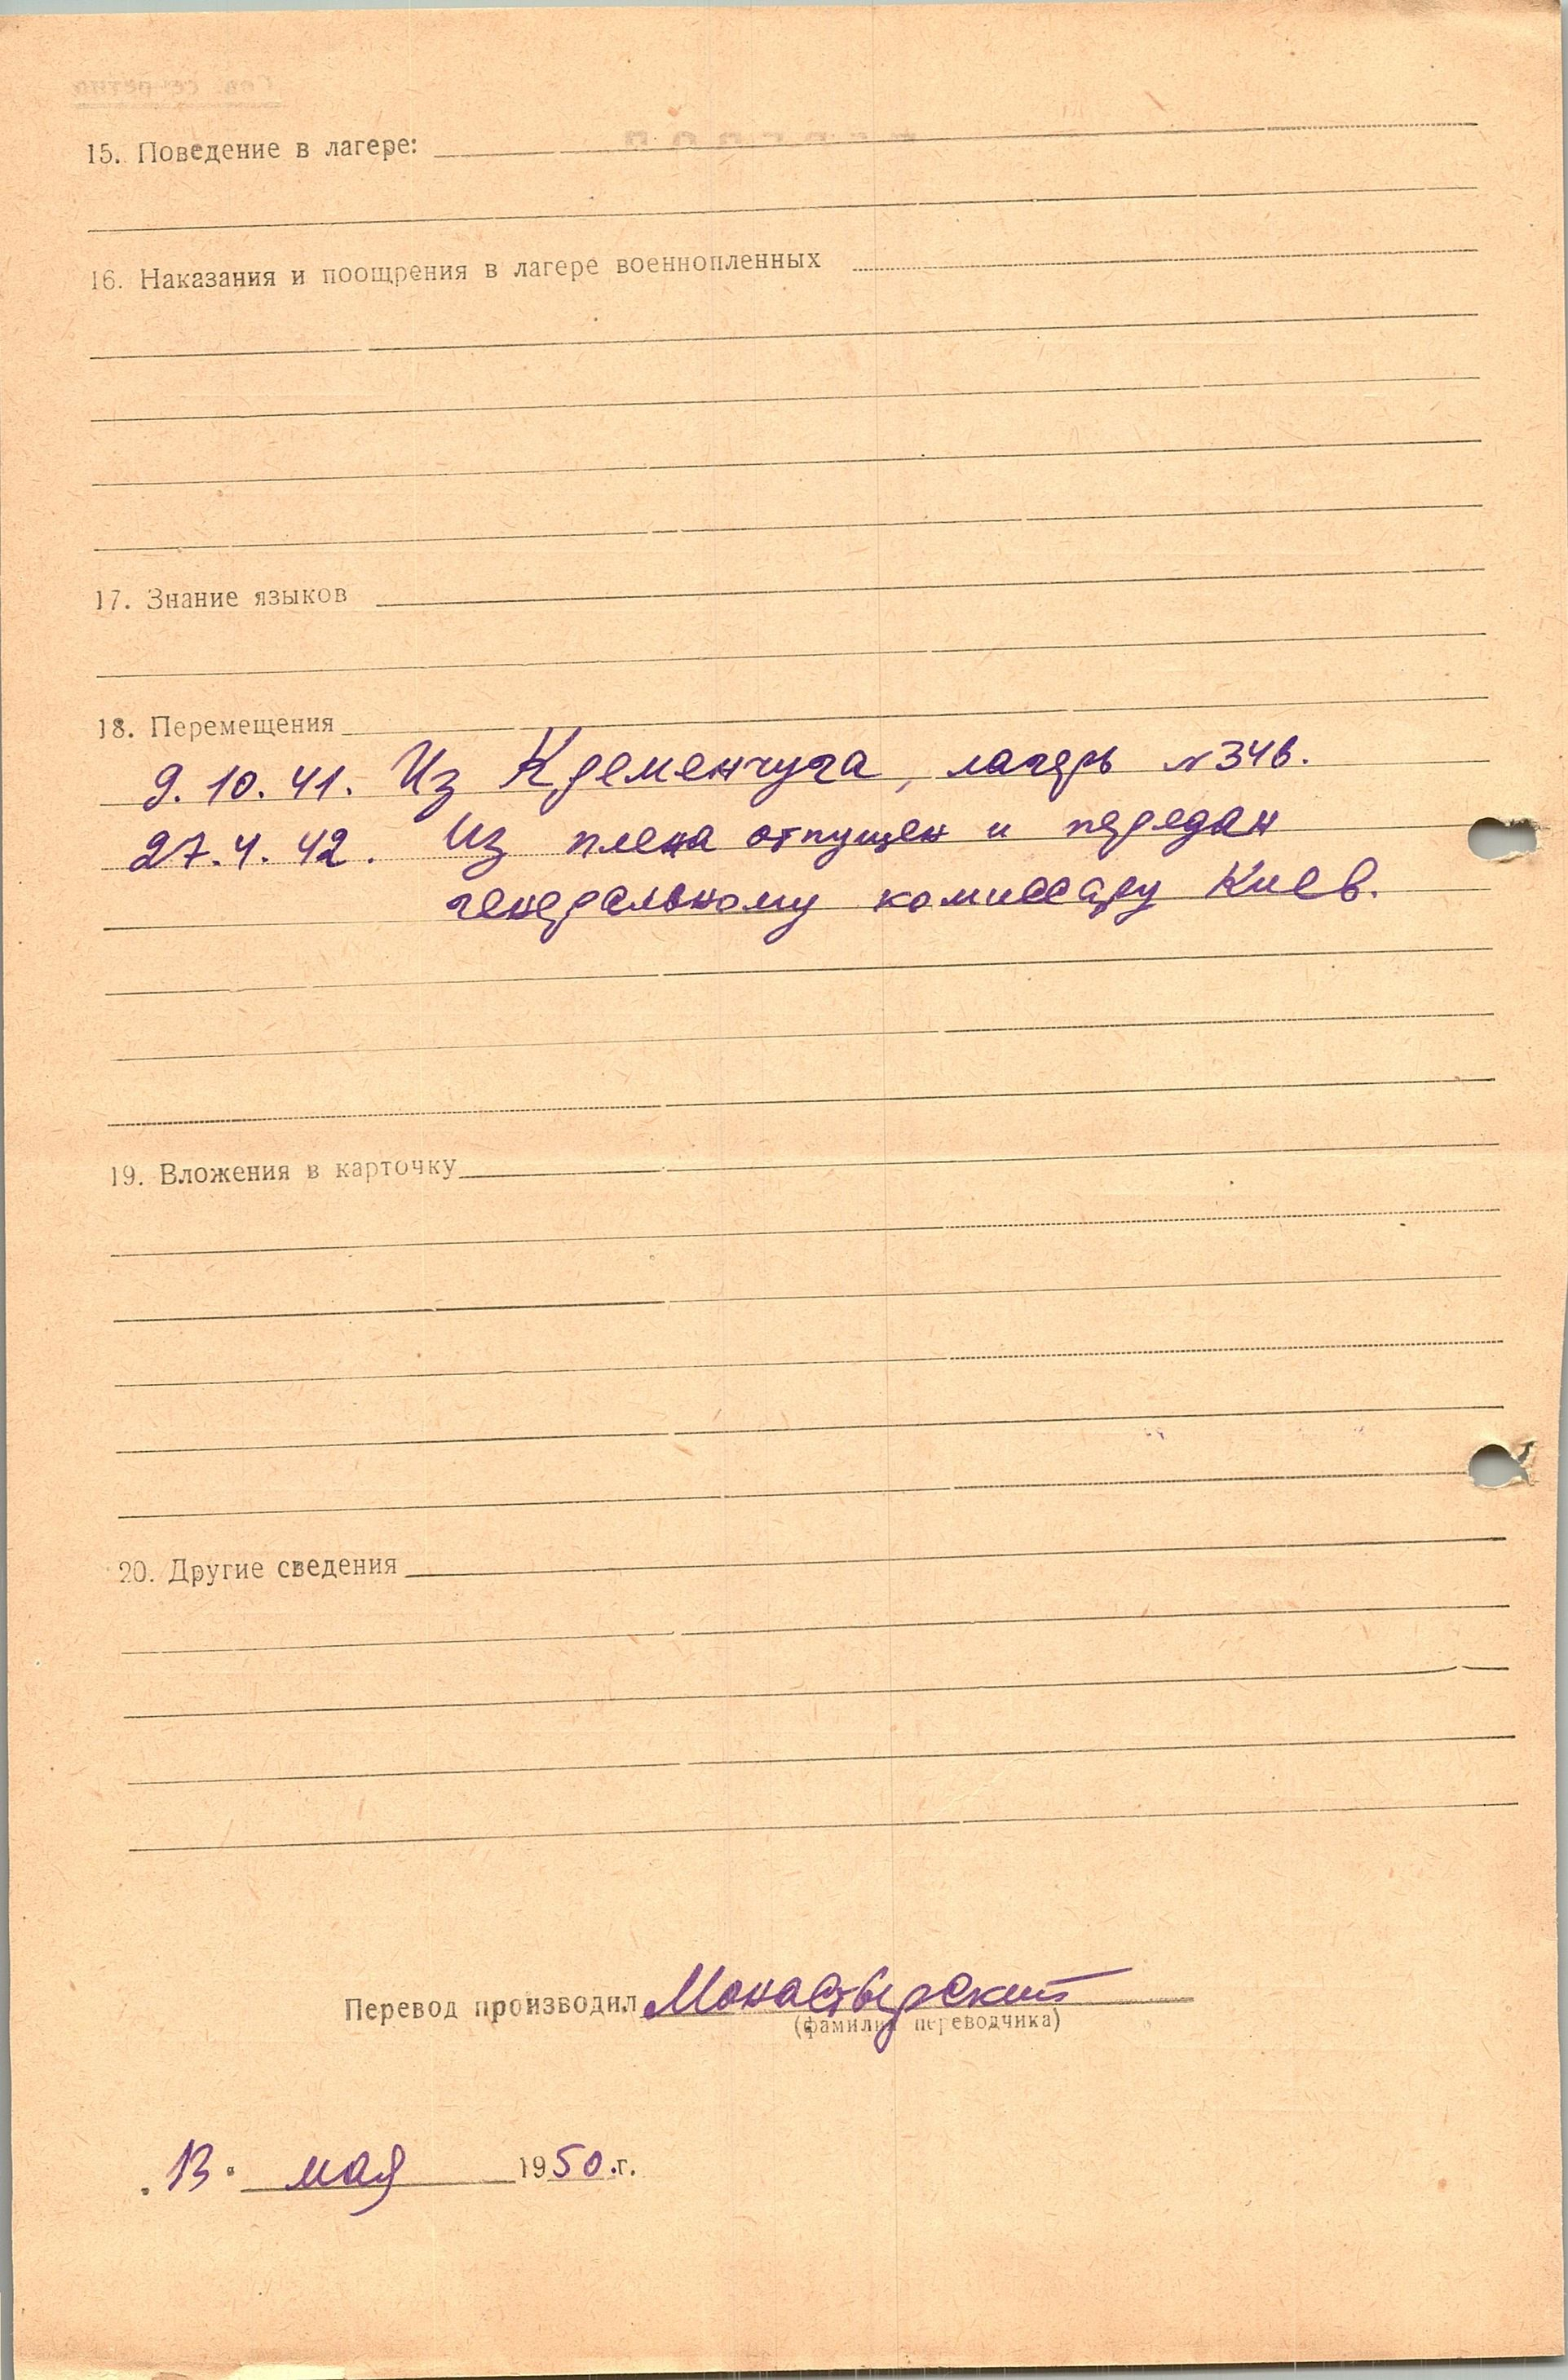 15. Поведение в лагере:
16. Наказания и поощрения в лагере военнопленных
17. Знание языков
18. Перемещения
9. 10. 41. Из Кременчуга, лагерь №346.
27. 4. 42. Из плена отпущен и передан
генеральному комиссару Киев.
19. Вложения в карточку
20. Другие сведения
Перевод производил Монастырский
(фамилия переводчика)
13. мая 1950.г.